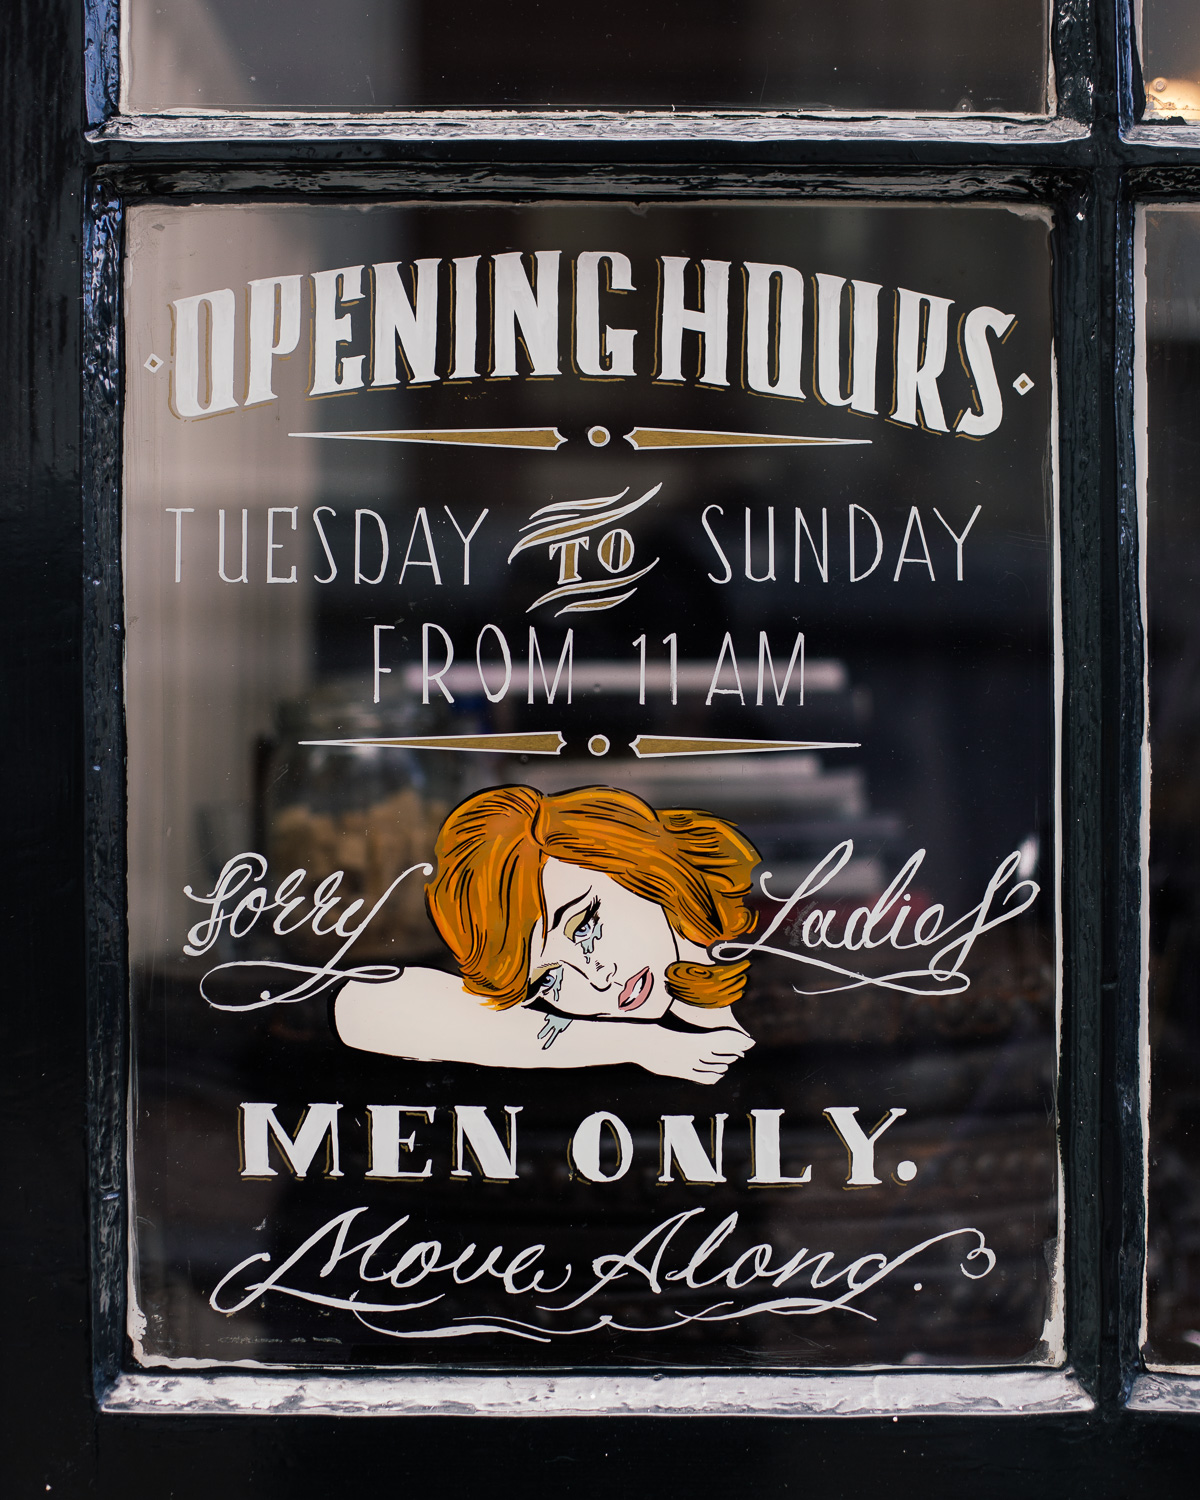 OPENING HOURS
TUESDAY TO SUNDAY
FROM 11 AM
Sorry Ladies
MEN ONLY.
Move Along.